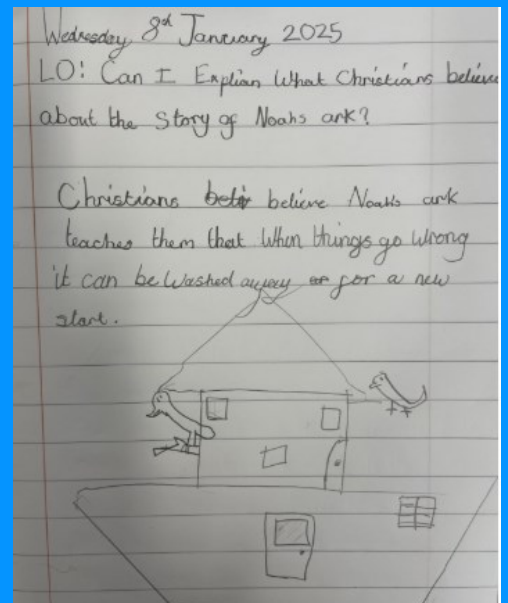 Wednesday 8th January 2025
LO: Can I Explian What Christians believe
about the Story of Noahs ark?
Christians beli believe Noahs ark
teaches them that When things go wrong
it can be Washed away or for a new
start.